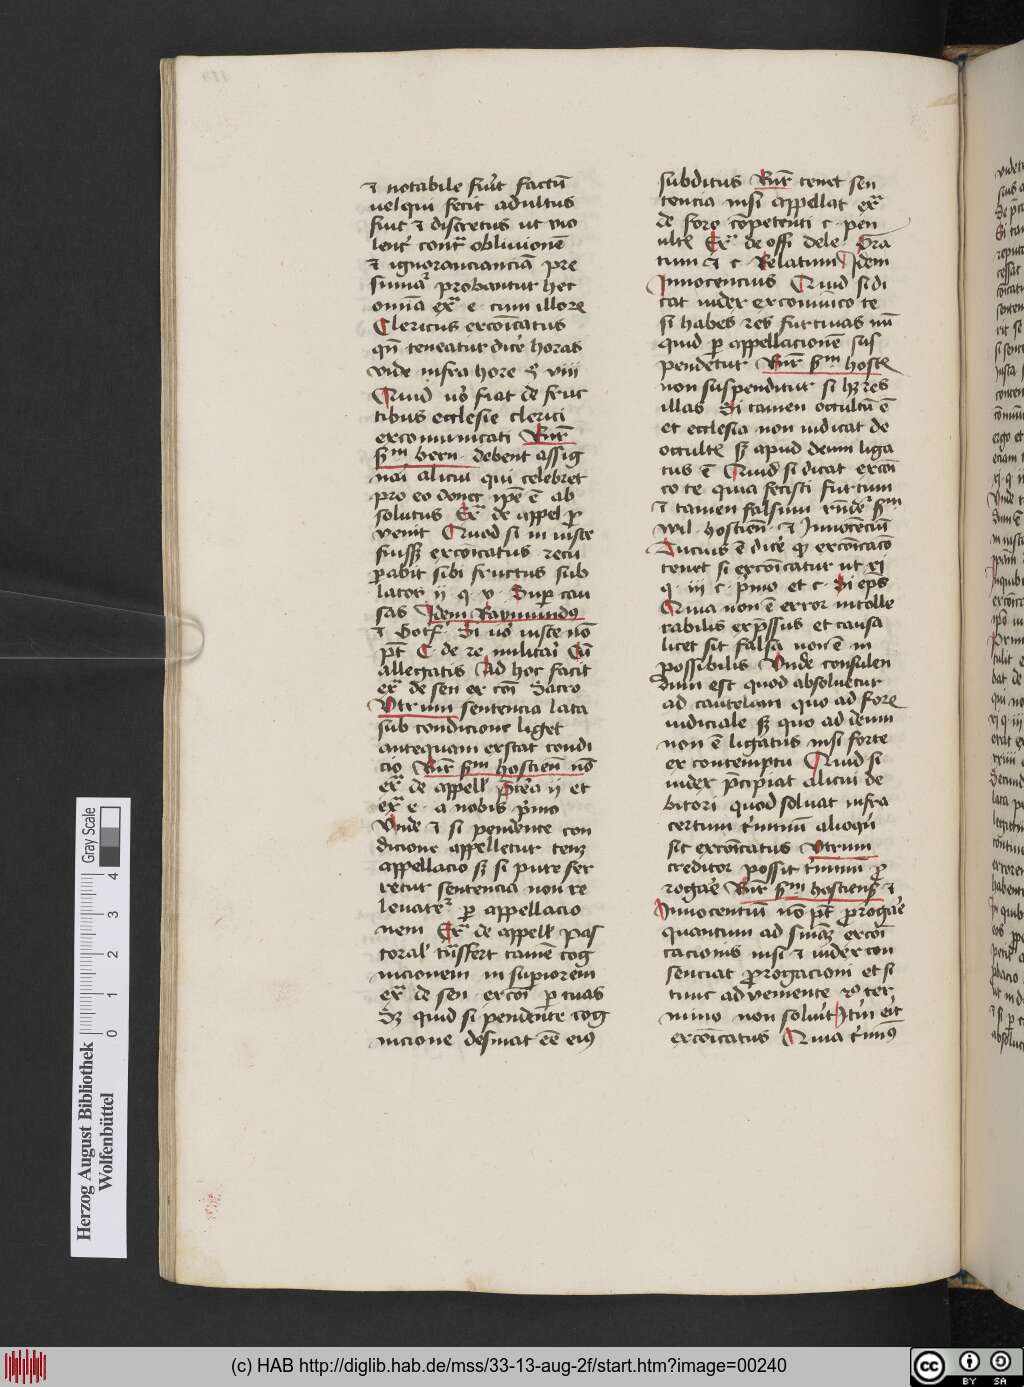 ⁊ notabile fuīt factū
uel qui fecit adultus
fuit ⁊ discretus ut vio
lent᷑ contᷓ obliuionē
⁊ ignoranciancīā pre
sumit᷑ probantur hec
omīa exᷓ e · cum illorꝫ
Clericus excōīcatus
qn̄ teneatur dic̄e horas
vide infra hore § viii
Quid u͛o fiat de fruc
tibus ecclesie clerici
excommunicati Rn̄r
sm̄ bern · debent assig
nāi alicui qui celebret
pro eo donec ip̄e ē ab
solutus Exᷓ de appel ꝑ
venit Quod si in iuste
fuissꝫ excōīcatus recū
ꝑabit sibi fructus sub
lator ii q v · Sup cau
sas Idem Raymundus
⁊ Gotf · Si u͛o iuste nō
pōt C de re militāi Cū
allegatis Ad hoc facit
exᷓ de sen ex cōī Sacro
Utrum sentencia lata
sub condicione liget
antequam extat condi
cio Rn̄r sm̄ hostien̄ nō
exᷓ de appell p̄tēa ii et
exᷓ e · a nobis p̄mo
Unde ⁊ si pendente con
dicione appelletur tenꝫ
appellacio sꝫ si pure fer
retur sentencia non re
leuaret᷑ ꝑ appellacio
nem Exᷓ de appell Pas
toral tn̄sfert tamē cog
nicionem in supiorem
exᷓ de sen · excōī ꝑ tuas
Sꝫ quid si pendente cog
nicione desinat eē eiꝰ
subditus Rn̄r tenet sen
tencia nisi appellat exᷓ
de foro cōpetenti c · pen
ultꝭ Exᷓ de offi dele Gra
tum ⁊ c · Relatum Idem
Innocencius Quid si di
cat iudex excommūico te
si habes res furtiuas nū
quid ꝑ appellacionē sus
pendetur Rn̄r sm̄ hostꝭ
non suspenditur si hꝫ res
illas Si tamen occultū ē
et ecclesia non iudicat de
occultꝭ sꝫ apud deum liga
tus ē Quid si dicat excōī
co te quia fecisti furtum
⁊ tamen falsum rn̄det᷑ sm̄
wil · hostien̄ · ⁊ Innocēciū
Tucius ē dic̄e ꝙ excōīcacō
tenet si excōīcatur ut xi
q · iii c · p̄mo et c · Si ep̄s
Quia non ē error intolle
rabilis exp̄ssus et causa
licet sit falsa non ē in
possibilis Unde consulen
dum est quod absoluetur
ad cautelam quo ad forꝫ
iudiciale sꝫ quo ad deum
non ē ligatus nisi forte
ex contemptu Quid si
iudex p̄cipiat alicui de
bitori quod soluat infra
certum t͛minū alioqn̄
sit excōīcatus Utrum
creditor possit t͛minū ꝓ
rogāe Rn̄r sm̄ hostiensꝫ ⁊
Innocentiū nō pōt ꝓrogāe
quantum ad sn̄iaꝫ excōī
cacionis nisi ⁊ iudex con
senciat ꝓrogacioni et si
tunc adveniente ter
mino non soluit Itm̄ erit
excōīcatus Quia t͛minꝰ
Herzog August Bibliothek
Wolfenbüttel
0 1 2 3 4
Gray Scale
(c) HAB http://diglib.hab.de/mss/33-13-aug-2f/start.htm?image=00240
cc BY SA